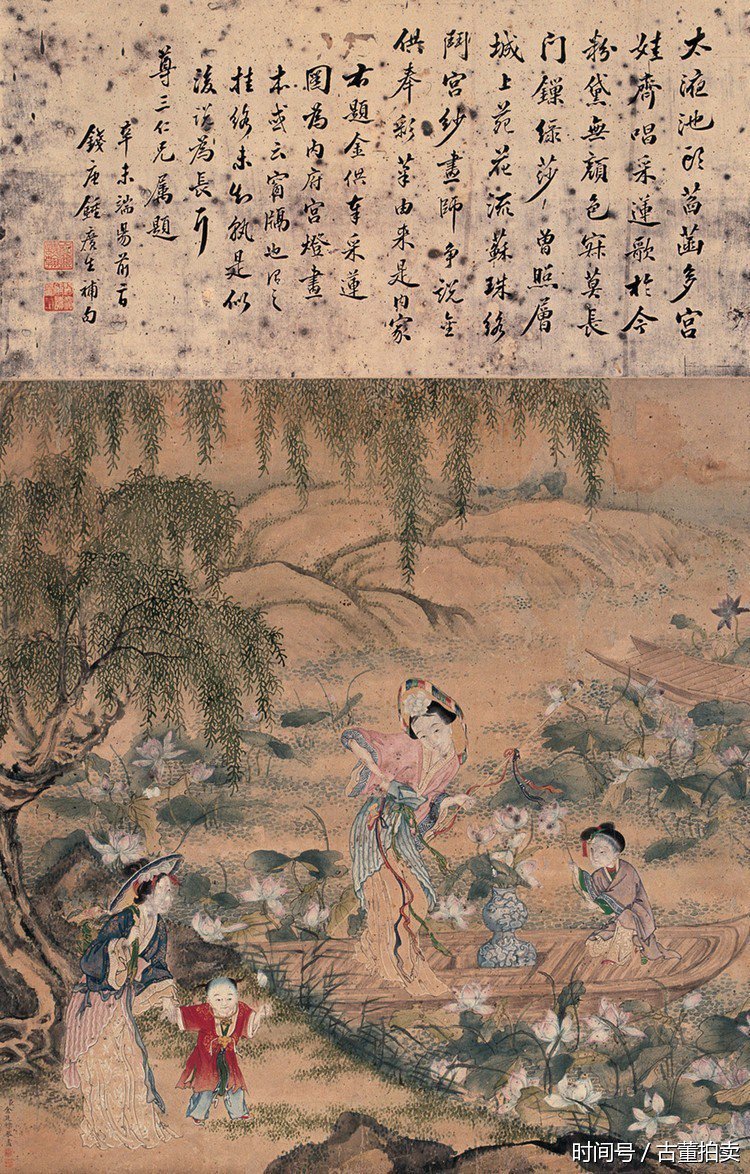 太液池頭菡萏多宮
娃齊唱采蓮歌於今
粉黛無顏色寂莫長
门鏁綠莎曾照層
城上苑花流蘇珠絡
鬥宮紗畫師争説金
供奉彩筆由来是内家
右題金供奉采蓮
圖為内府宮燈畫
本或云窗隔也
挂絡未知孰是似
後説為長
尊三仁兄屬題
辛未端陽前一日
錢唐鍾廣生補句
时间号 / 古董拍卖